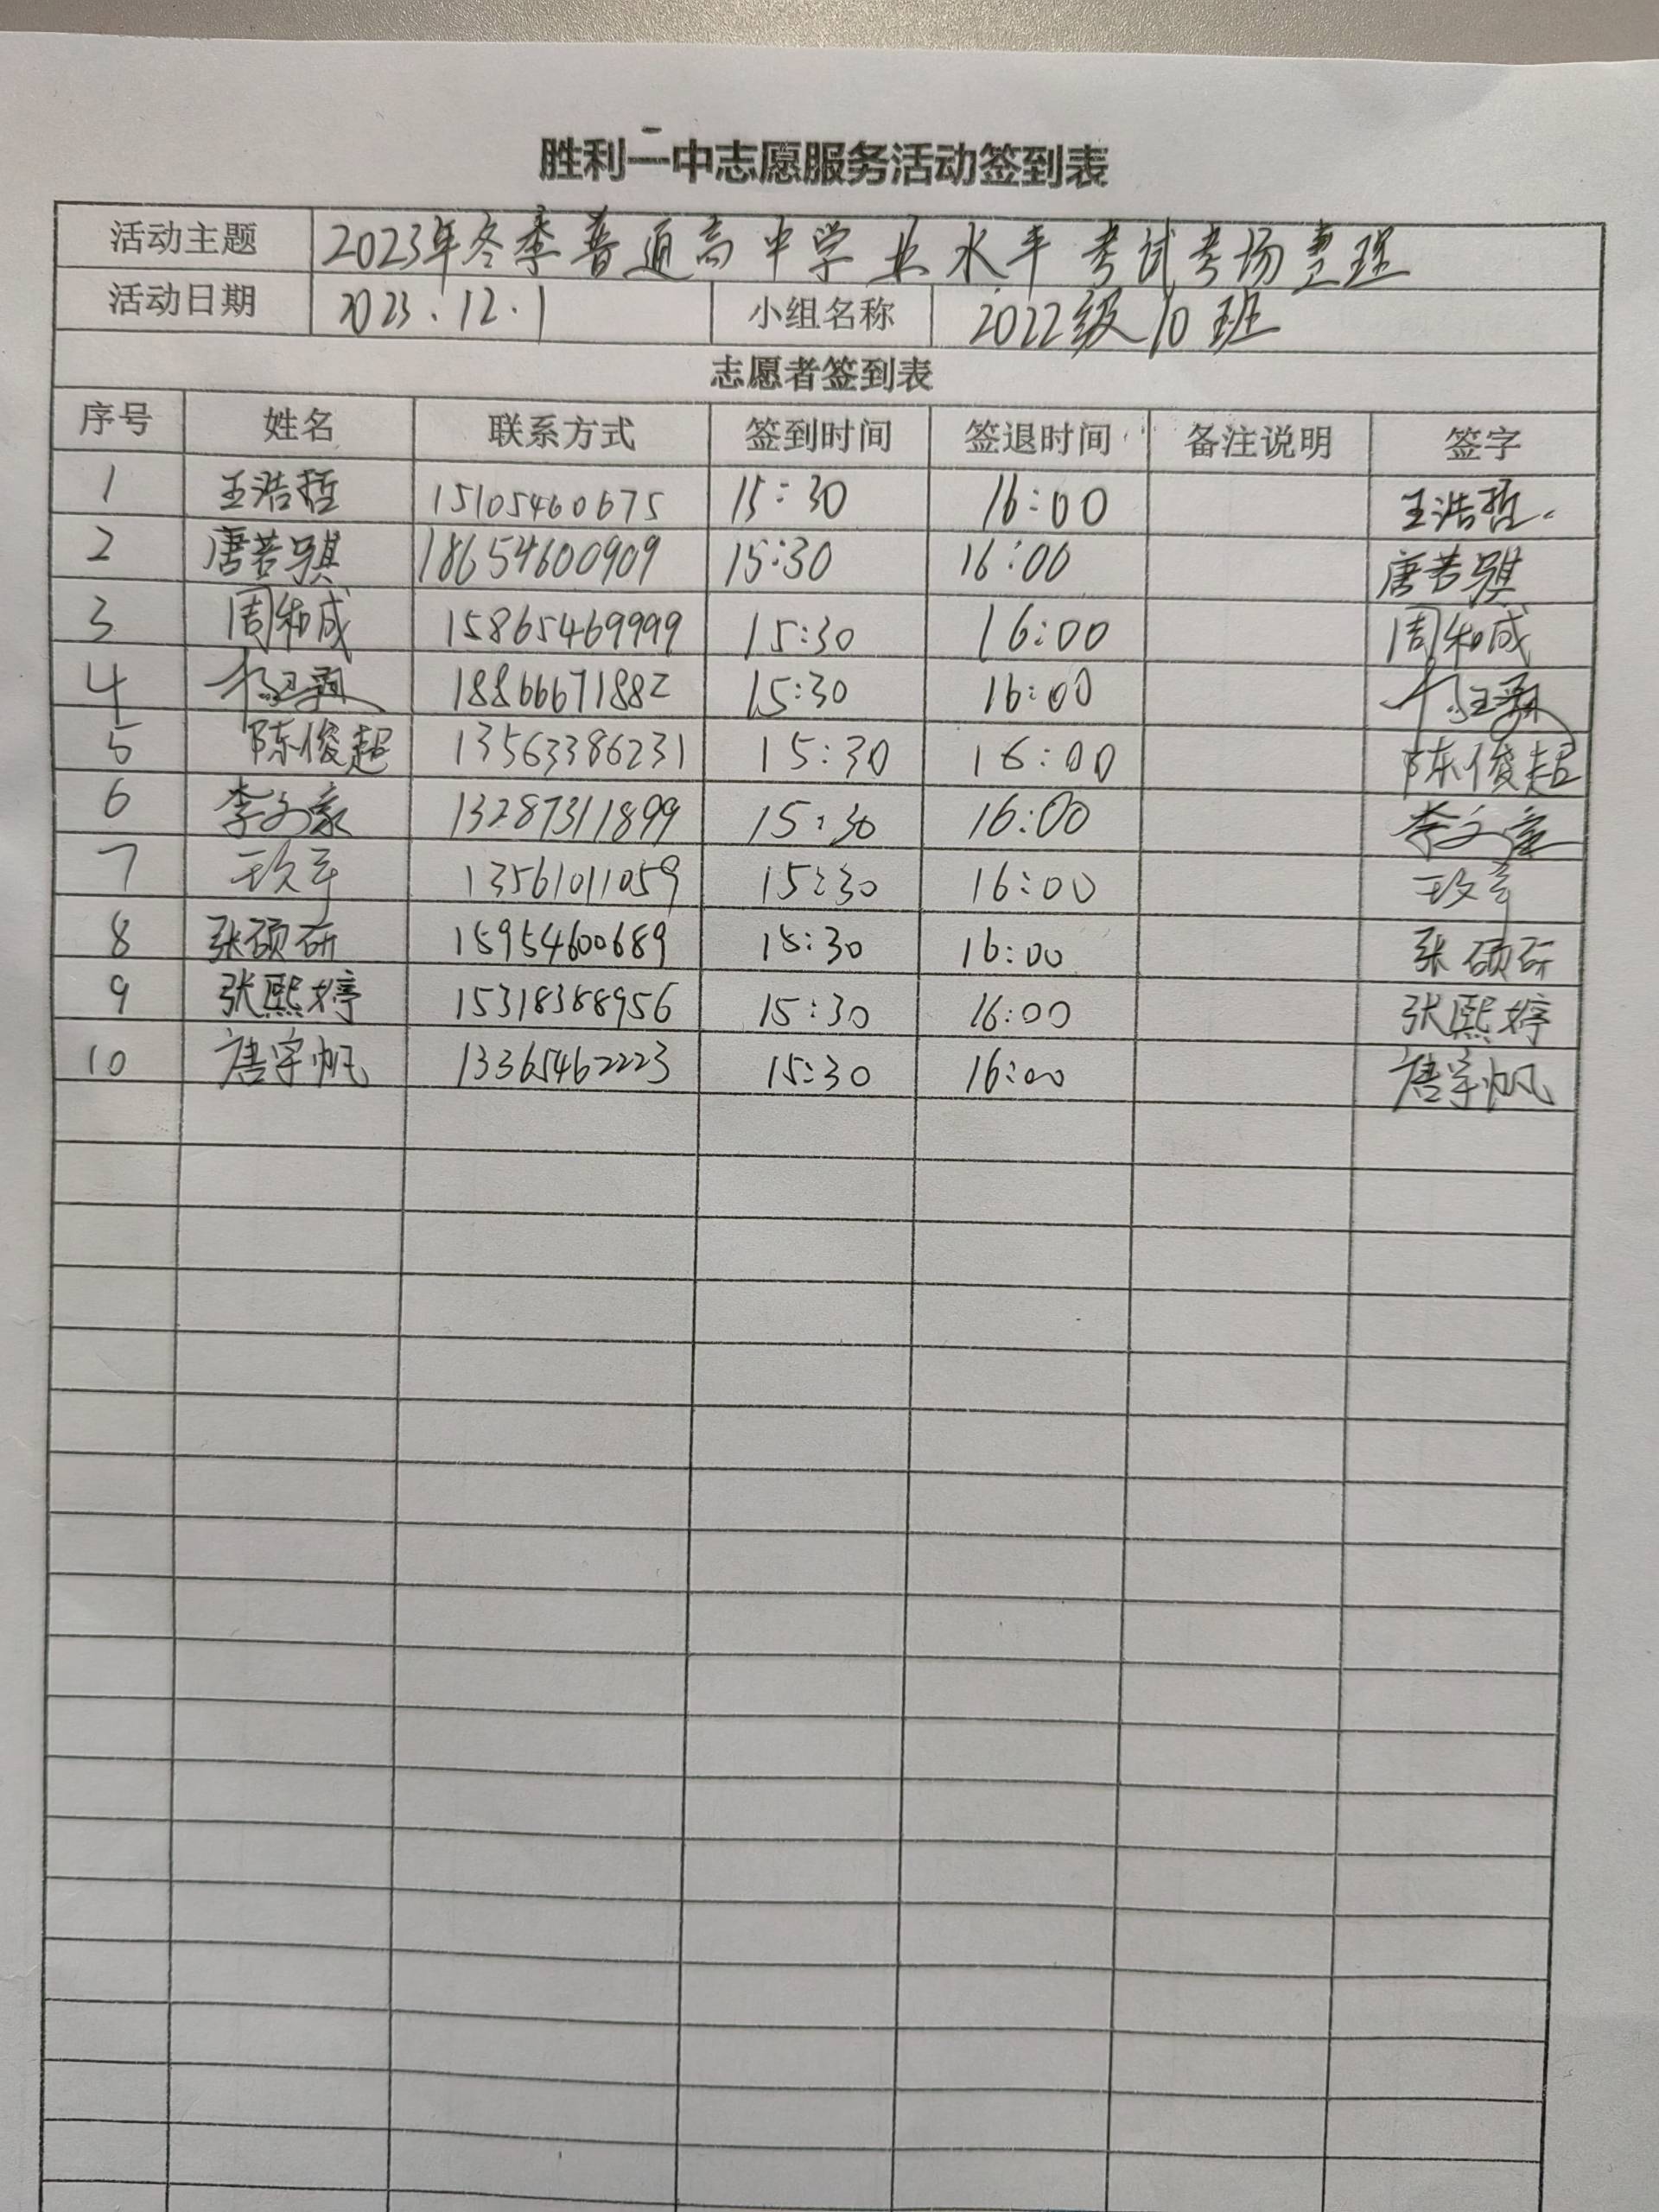 胜利一中志愿服务活动签到表
活动主题 2023年冬季普通高中学业水平考试考场整理
活动日期 2023.12.1 小组名称 2022级10班
志愿者签到表
序号 姓名 联系方式 签到时间 签退时间 备注说明 签字
1 王浩哲 15105460675 15:30 16:00 王浩哲
2 唐若骐 18654600909 15:30 16:00 唐若骐
3 周和成 15865469999 15:30 16:00 周和成
4 18866671882 15:30 16:00
5 陈俊超 13563386231 15:30 16:00 陈俊超
6 李文豪 13287311899 15:30 16:00 李文豪
7 13561011059 15:30 16:00
8 张硕研 15954600689 15:30 16:00 张硕研
9 张熙婷 15318388956 15:30 16:00 张熙婷
10 唐宇帆 13365462223 15:30 16:00 唐宇帆